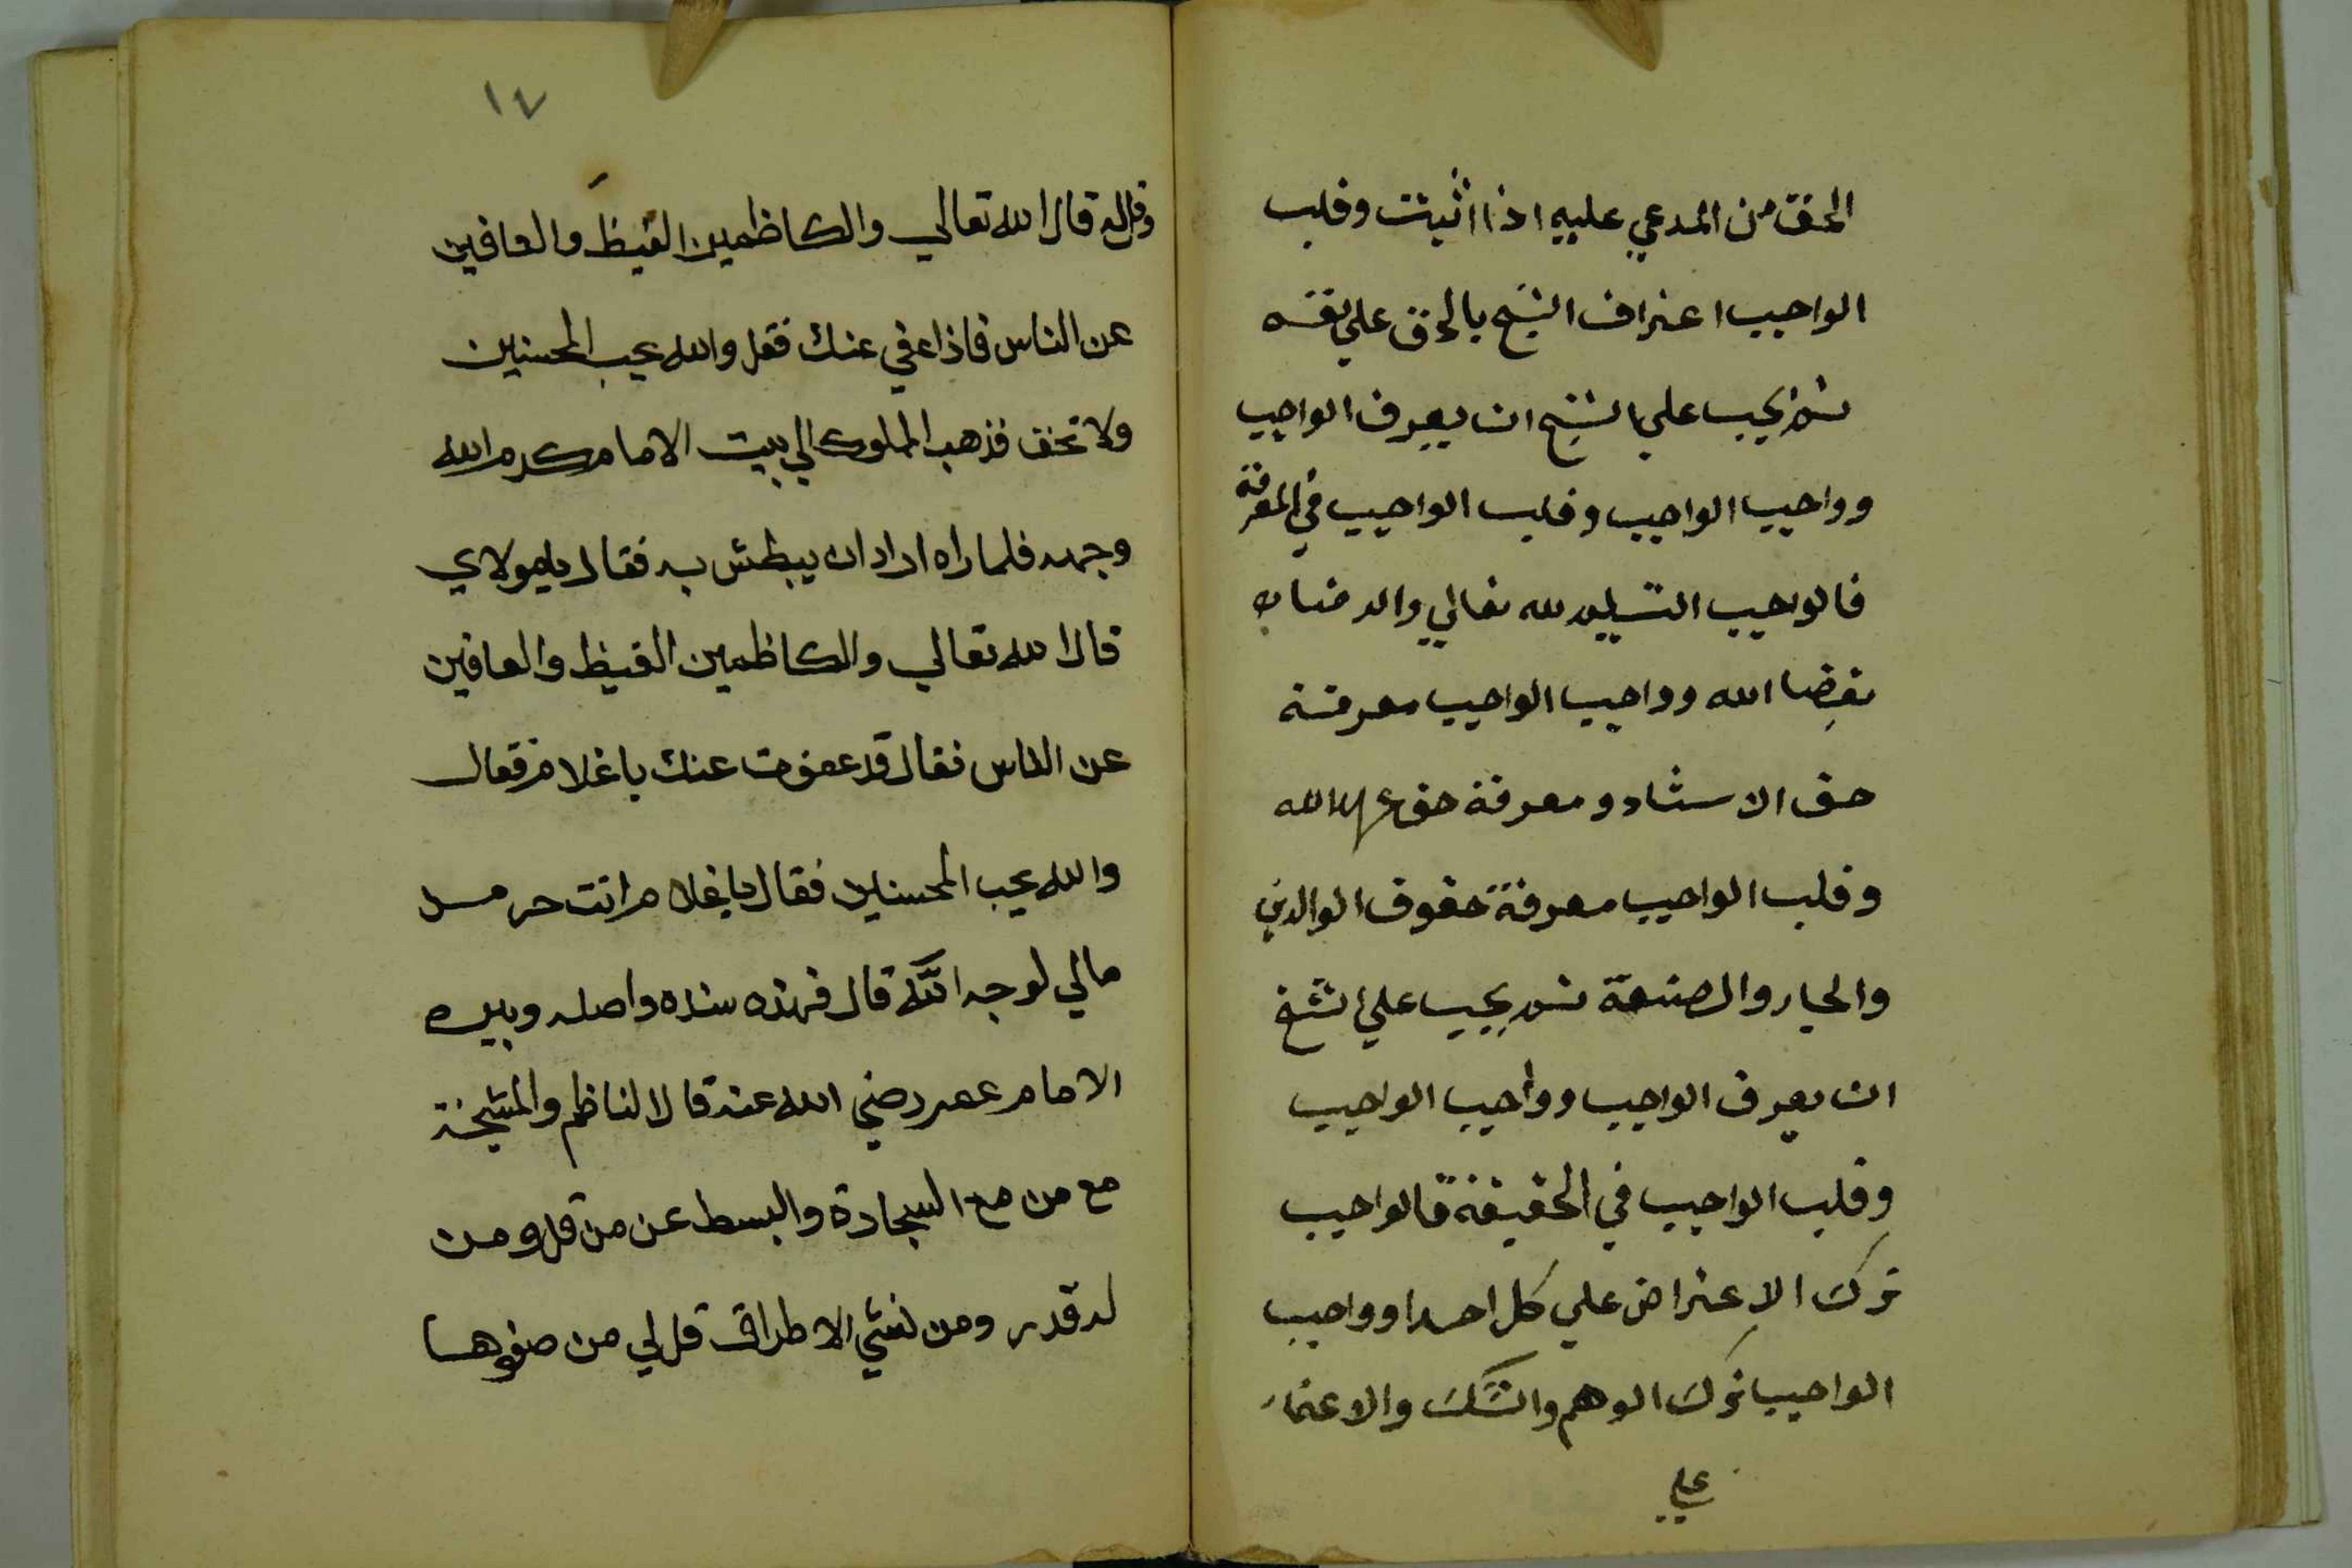 الحق من المدعي عليه اذا اثبت وقلب
الواجب اعتراف الشيخ بالحق علي نفسه
ثم يجب علي الشيخ ان يعرف الواجب
وواجب الواجب وقلب الواجب في المعرفة
فالواجب التسليم لله تعالي والرضا به
بقضا الله وواجب الواجب معرفة
حق الاستاد ومعرفة حق الله
وقلب الواجب معرفة حقوق الوالدين
والجار والصنعة ثم يجب علي الشيخ
ان يعرف الواجب وواجب الواجب
وقلب الواجب في الحقيقة فالواجب
ترك الاعتراض علي كل احدا وواجب
الواجب ترك الوهم والشك والاعتماد
علي
١٧
وقل له قال الله تعالي والكاظمين الغيظ والعافين
عن الناس فاذا عفي عنك فقل والله يحب المحسنين
ولا تخف فذهب المملوك الي بيت الامام كرم الله
وجهه فلما راه اراد ان يبطش به فقال يا مولاي
قال الله تعالي والكاظمين الغيظ والعافين
عن الناس فقال قد عفوت عنك يا غلام فقال
والله يحب المحسنين فقال يا غلام انت حر من
مالي لوجه الله قال فهذه سنده واصله وبيره
الامام عمر رضي الله عنه قال الناظم والمشيخة
مع من مع السجادة والبسط عن من قل ومن
له قدر ومن نشي الاطراف قل لي من صفوها